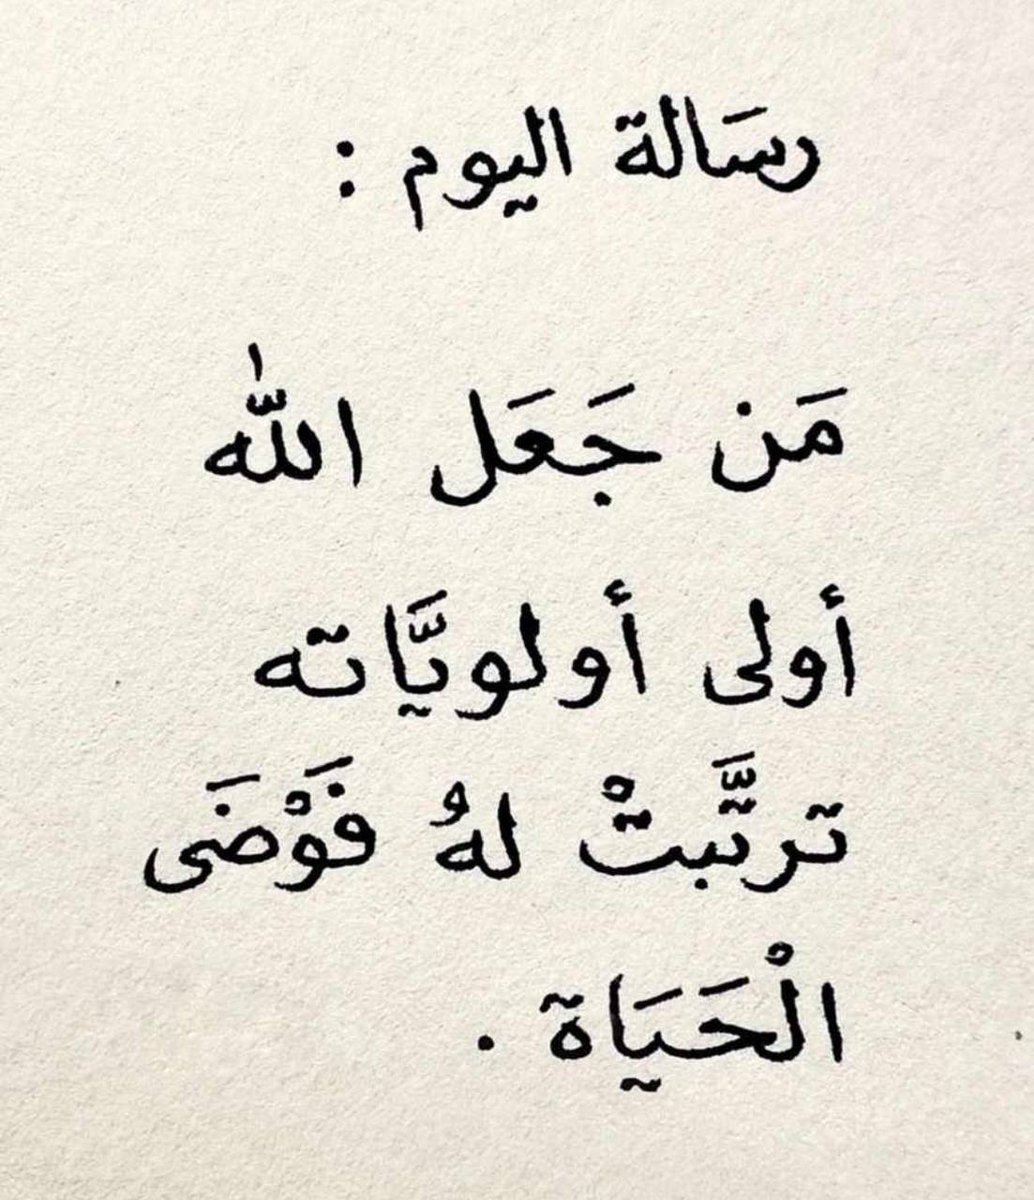 رسَالة اليوم :
مَن جَعَل اللّٰه
أولى أولويَّاته
ترتَّبتْ لهُ فَوْضَى
الْحَيَاة .